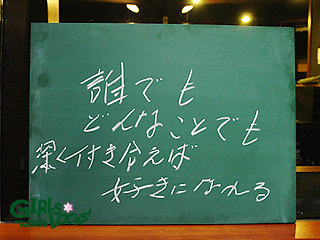 誰でも
どんなことでも
深く付き合えば
好きになれる
GIRLS
LOGS!